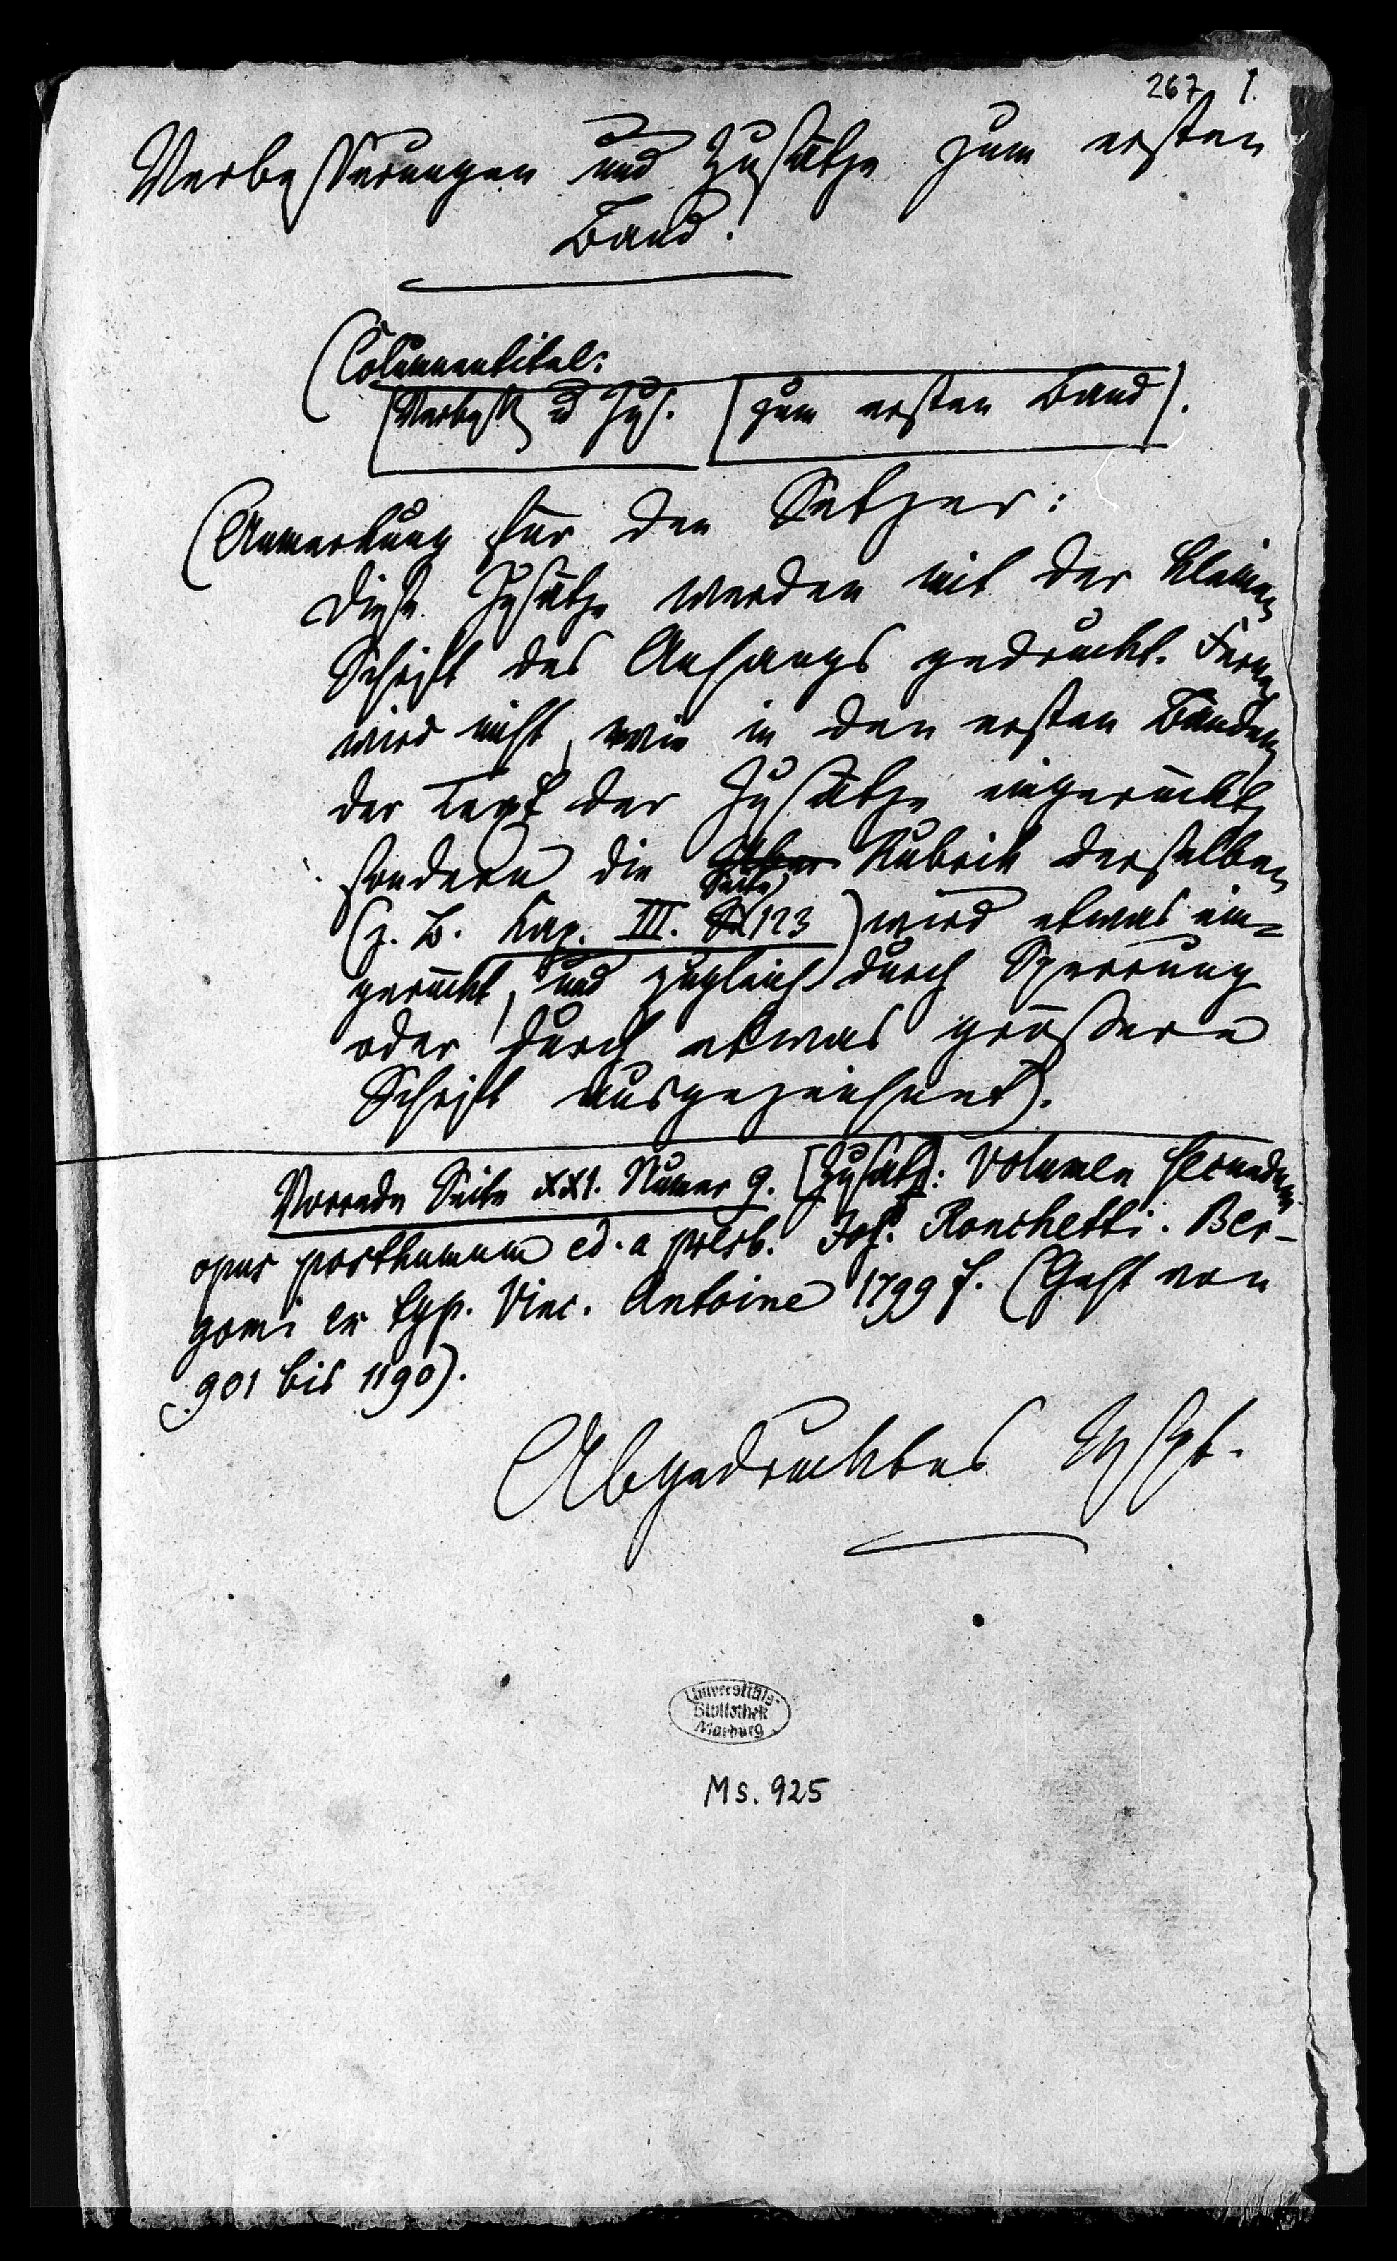 267 1.
Verbesserungen und Zusätze zum ersten
Band.
(Columnentitel:
[Verbess. u Zus. [zum ersten Band].
(Anmerkung für den Setzer:
Diese Zusätze werden mit der kleinen
Schrift des Anhangs gedruckt. Ferner
wird nicht, wie in den ersten Bänden
der Text der Zusätze eingerückt,
sondern die Rubrik derselben
Seite
(z. B. Kap. III. 123) wird etwas ein-
gerückt, und zugleich durch Sperrung
oder durch etwas größere
Schrift ausgezeichnet).
Vorrede Seite XXI. Numer 9. [Zusatz]: Volumen secundum
opus posthumum ed. a presb. Jos. Ronchetti. Ber-
gomi ex typ. Vinc. Antoine 1799 f. (Geht von
901 bis 1190).
Abgedrucktes Mspt.
Universitäts-
Bibliothek
Marburg
Ms. 925